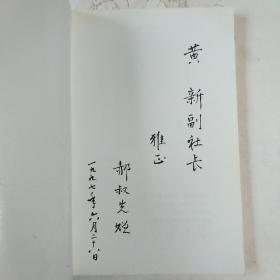 黄 新副社长
雅正
郝叔光赠
一九九七年六月二十八日